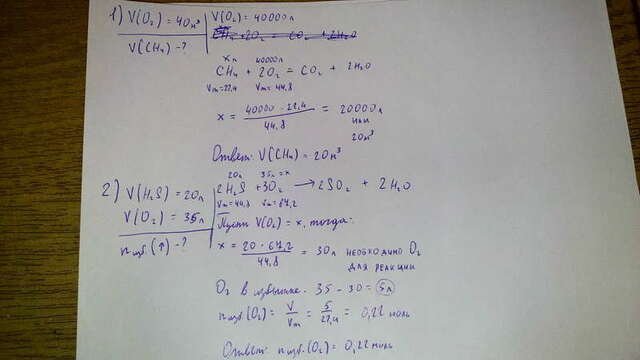 1) V(O₂) = 40м³
V(CH₄) - ?
V(O₂) = 40000л
CH₄ + 2O₂ = CO₂ + 2H₂O
хл 40000л
CH₄ + 2O₂ = CO₂ + 2H₂O
Vm=22,4 Vm=44,8
x = 40000 · 22,4 / 44,8 = 20000л
или
20м³
Ответ: V(CH₄) = 20м³
2) V(H₂S) = 20л
V(O₂) = 35л
n изб. (↑) - ?
20л 35л = x
2H₂S + 3O₂ → 2SO₂ + 2H₂O
Vm=44,8 Vm=67,2
Пусть V(O₂) = x, тогда:
x = 20 · 67,2 / 44,8 = 30л необходимо O₂
для реакции
O₂ в избытке. 35 - 30 = 5л
n изб.(O₂) = V / Vm = 5 / 22,4 = 0,22 моль
Ответ: n изб.(O₂) = 0,22 моль